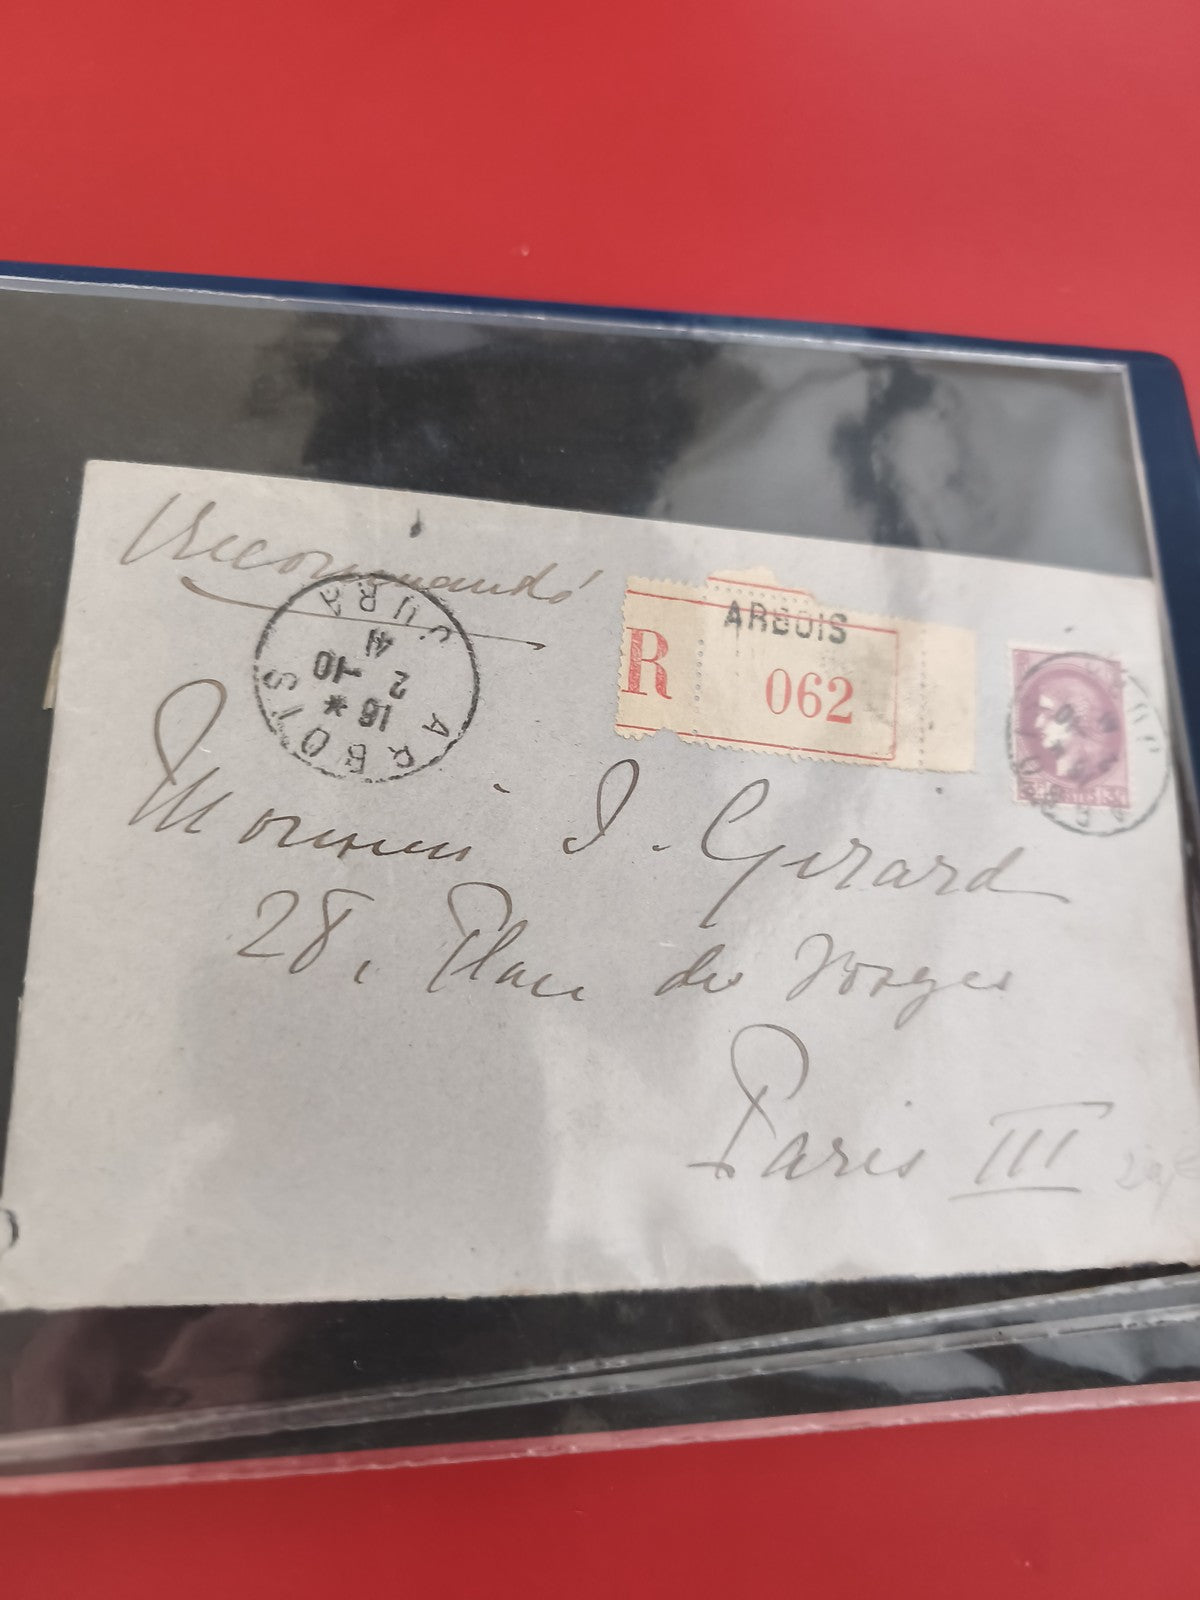 Recommandé
ARBOIS
JURA
16 *
2 -10
41
ARBOIS
R 062
Monsieur J. Girard
28, Place des Vosges
Paris III